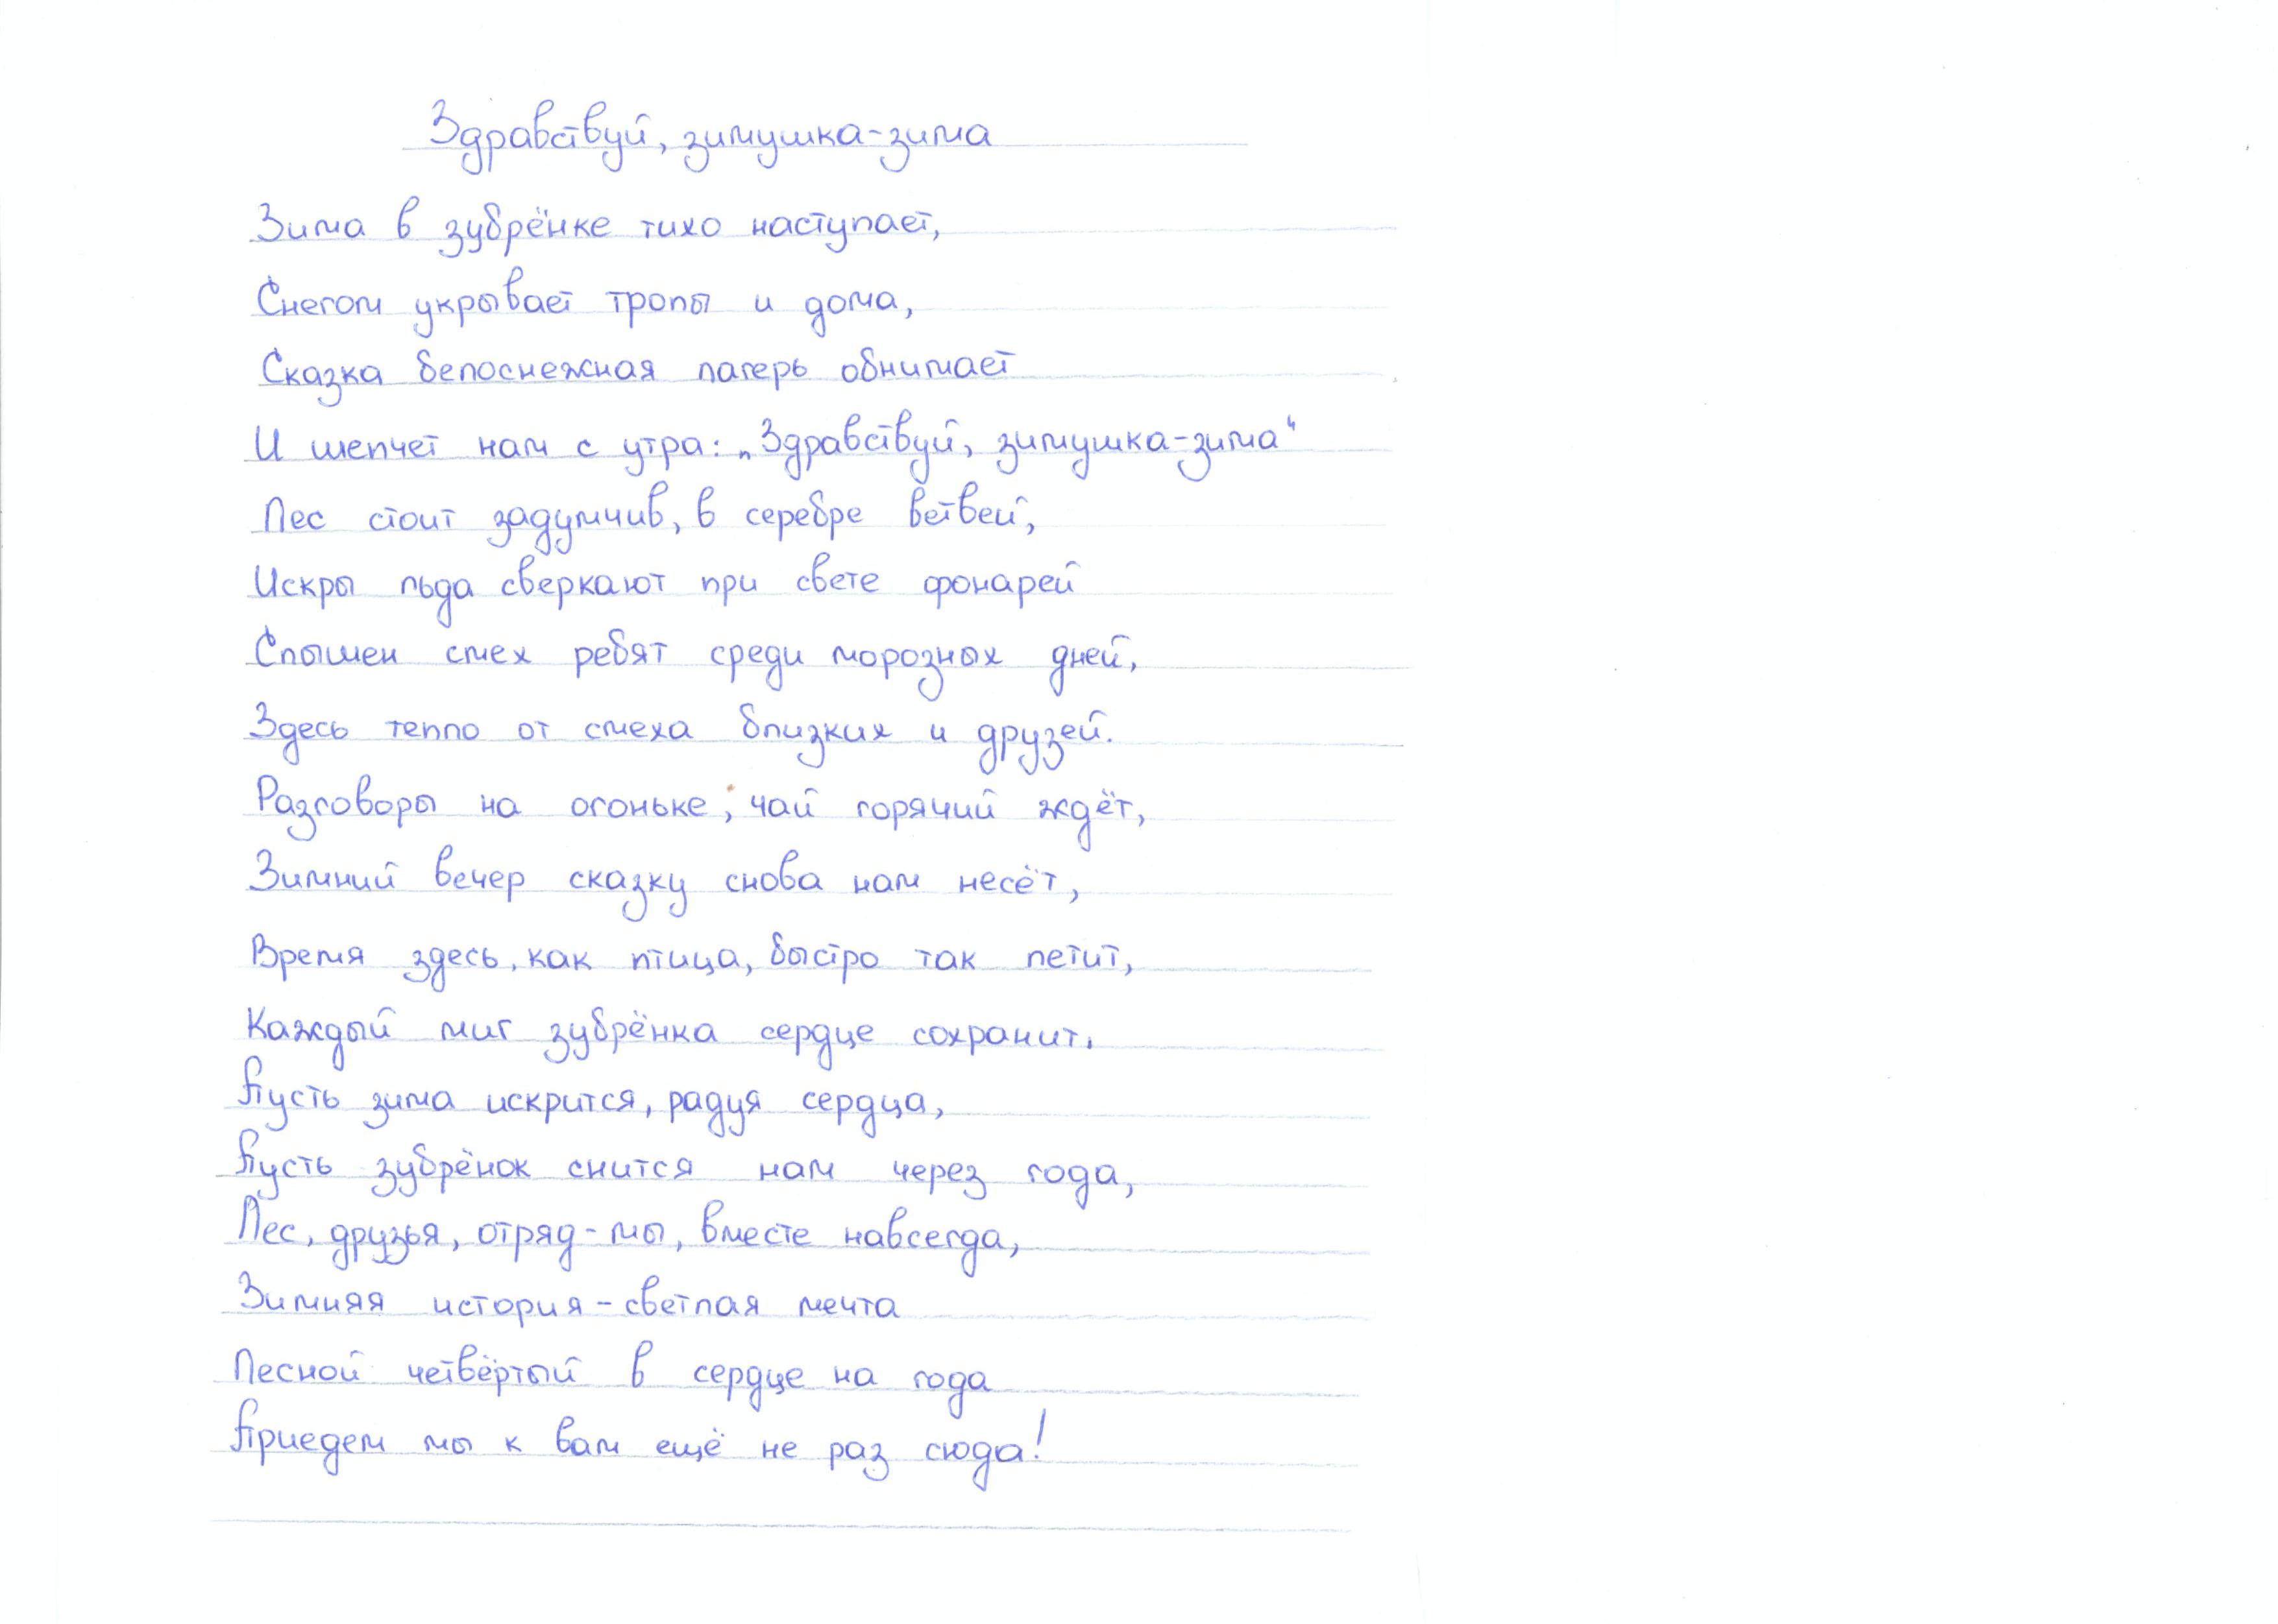 Здравствуй, зимушка-зима
Зима в зубрёнке тихо наступает,
Снегом укрывает тропы и дома,
Сказка белоснежная лагерь обнимает
И шепчет нам с утра: „Здравствуй, зимушка-зима“
Лес стоит задумчив, в серебре ветвей,
Искры льда сверкают при свете фонарей
Слышен смех ребят среди морозных дней,
Здесь тепло от смеха близких и друзей.
Разговоры на огоньке, чай горячий ждёт,
Зимний вечер сказку снова нам несёт,
Время здесь, как птица, быстро так летит,
Каждый миг зубрёнка сердце сохранит.
Пусть зима искрится, радуя сердца,
Пусть зубрёнок снится нам через года,
Лес, друзья, отряд-мы, вместе навсегда,
Зимняя история-светлая мечта
Лесной четвёртый в сердце на года
Приедем мы к вам ещё не раз сюда!